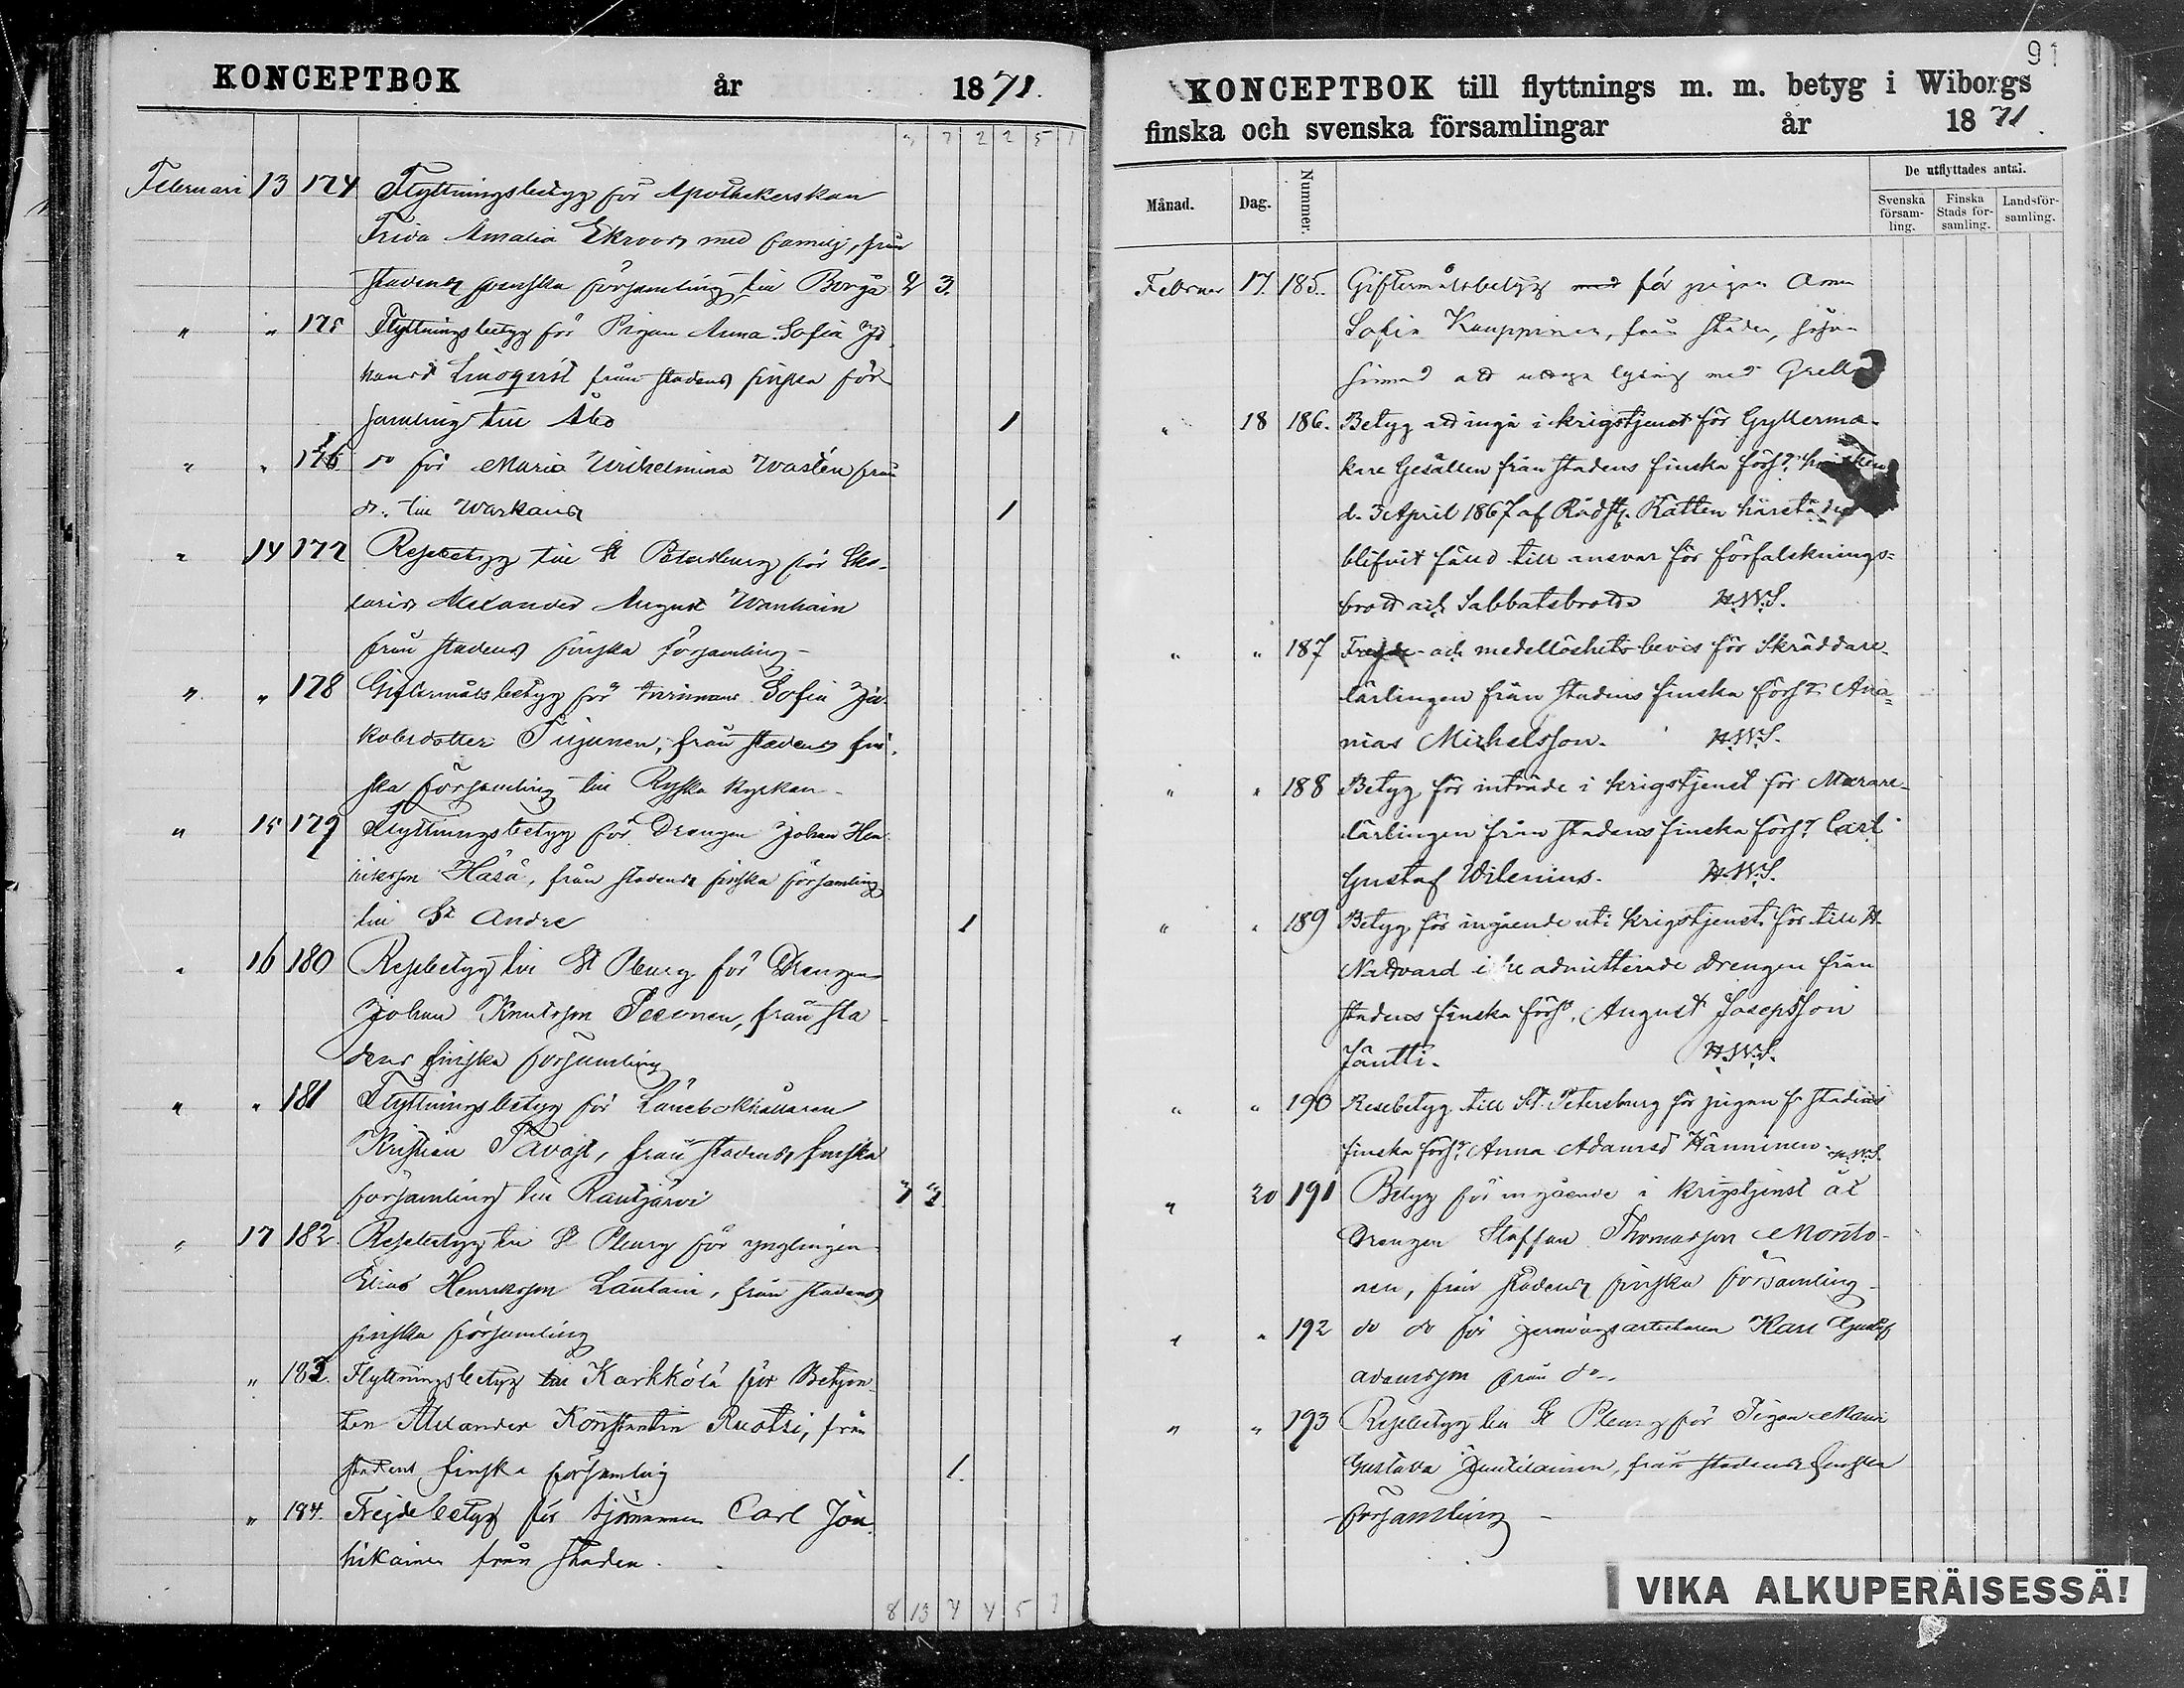 KONCEPTBOK år 1871.
3 7 2 2 5 1
Februari 13 174 Flyttningsbetyg för Apothekerskan
Frida Amalia Ekroos med familj, från
stadens svenska församling till Borgå 4 3.
" " 175 Flyttningsbetyg för Pigan Anna Sofia Jo
hansd Lindqvist från stadens finska för
samling till Åbo 1
" " 176 do för Maria Wilhelmina Wastén från
do. till Warkaus 1
" 14 177 Resebetyg till St Petersburg för Sko-
laris Alexander August Wanhain
från stadens finska församling-
" " 178 Giftermålsbetyg för Sofia Ja-
kobsdotter Tirjunen, från stadens fin-
ska församling till Ryska kyrkan-
" 15 179 Flyttningsbetyg för Drengen Johan Hen
riksson Häsä, från stadens finska församling
till St Andre 1
" 16 180 Resebetyg till St Pburg för Drengen
Johan Knutsson Pesonen, från sta
dens finska församling
" " 181 Flyttningsbetyg för Länebokhållaren
Kristian Tavast, från stadens finska
församling till Rautjärvi
" 17 182. Resebetyg till St Pburg för ynglingen
Elias Henriksson Lautain, från stadens
finska församling
" 183. Flyttningsbetyg till Karkkölä för Betjen-
ten Alexander Konstantin Ruotsi, från
stadens finska församling 1.
" 184. Frejdebetyg för sjömannen Carl Jan
hikainen från staden.
8 13 4 4 5 1
91
KONCEPTBOK till flyttnings m. m. betyg i Wiborgs
finska och svenska församlingar år 1871.
Månad. Dag. Nummer. De utflyttades antal.
Svenska församling. Finska Stads församling. Landsförsamling.
Februar 17. 185. Giftermålsbetyg med för pigan Anna
Sofia Kauppinen, från staden,
att uttaga lysning med
" 18 186. Betyg att ingå i krigstjenst för Gyllerma-
kare Gesällen från stadens finska förs:g
d. 3 April 1867 af Rådst. Rätten härstädes
blifvit fäld till ansvar för förfalsknings=
brott och Sabbatsbrott H.W.S.
" " 187 Frejde- och medellöshets-bevis för Skräddare-
lärlingen från stadens finska förs:g Ana=
nias Michelsson. H.W.S.
" " 188 Betyg för inträde i krigstjenst för Murare-
lärlingen från stadens finska förs:g Carl
Gustaf Wilenius. H.W.S.
" " 189 Betyg för ingående uti krigstjenst för till H.
Nattvard icke admitterade drengen från
stadens finska förs:g, August Josepsson
Jäntti. H.W.S.
" " 190 Resebetyg till St. Petersburg för pigan fr stadens
finska förs:g Anna Adamsd Hänninen. H.W.S.
" 20 191 Betyg för ingående i krigstjenst åt
Drengen Staffan Thomasson Monto-
nen, från stadens finska församling-
" " 192 do do för jernvägsarbetaren Karl Gustaf
Adamsson från do-.
" " 193 Resebetyg till St Pburg för Pigan Maria
Gustava Juutilainen, från stadens finska
församling -
VIKA ALKUPERÄISESSÄ!